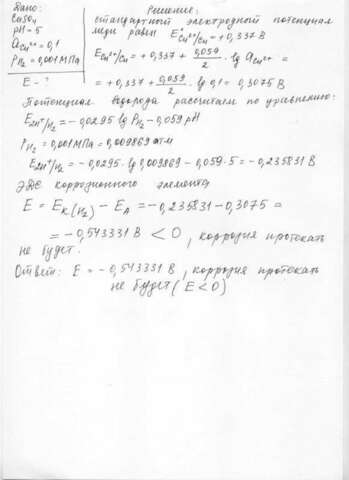 Дано:
CuSO₄
pH = 5
a Cu²⁺ = 0,1
P H₂ = 0,001 МПа
E - ?
Решение:
стандартный электродный потенциал
меди равен E° Cu²⁺/Cu = +0,337 В
E Cu²⁺/Cu = +0,337 + 0,059/2 · lg a Cu²⁺ =
= +0,337 + 0,059/2 · lg 0,1 = 0,3075 В
Потенциал водорода рассчитаем по уравнению:
E 2H⁺/H₂ = -0,0295 lg P H₂ - 0,059 pH
P H₂ = 0,001 МПа = 0,009869 атм
E 2H⁺/H₂ = -0,0295 · lg 0,009869 - 0,059 · 5 = -0,235831 В
ЭДС коррозионного элемента
E = E к(H₂) - E А = -0,235831 - 0,3075 =
= -0,543331 В < 0, коррозия протекать
не будет.
Ответ: E = -0,543331 В, коррозия протекать
не будет (E < 0)